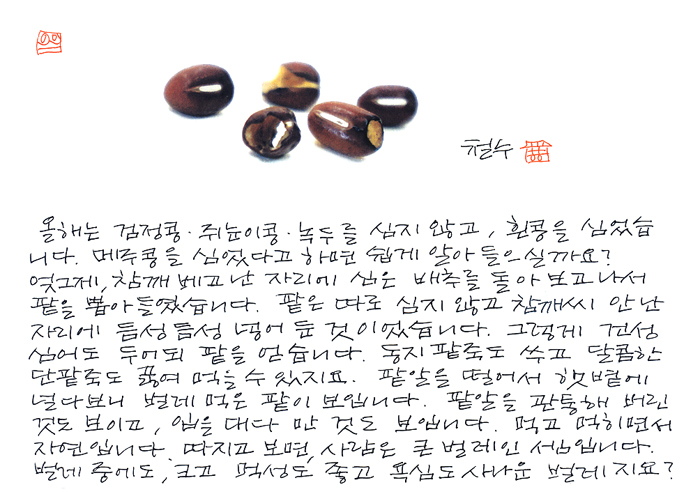 철수
올해는 검정콩·쥐눈이콩·녹두를 심지 않고, 흰콩을 심었습
니다. 메주콩을 심었다고 하면 쉽게 알아 들으실까요?
엊그제, 참깨 베고 난 자리에 심은 배추를 돌아 보고 나서
팥을 뽑아들였습니다. 팥은 따로 심지 않고 참깨씨 안 난
자리에 듬성듬성 넣어 둔 것이었습니다. 그렇게 건성
심어도 두어되 팥을 얻습니다. 동지 팥죽도 쑤고 달콤한
단팥죽도 끓여 먹을 수 있지요. 팥알을 떨어서 햇볕에
널다보니 벌레 먹은 팥이 보입니다. 팥알을 관통해 버린
것도 보이고, 입을 대다 만 것도 보입니다. 먹고 먹히면서
자연입니다. 따지고 보면, 사람은 큰 벌레인 셈입니다.
벌레 중에도, 크고 먹성도 좋고 욕심도 사나운 벌레지요?